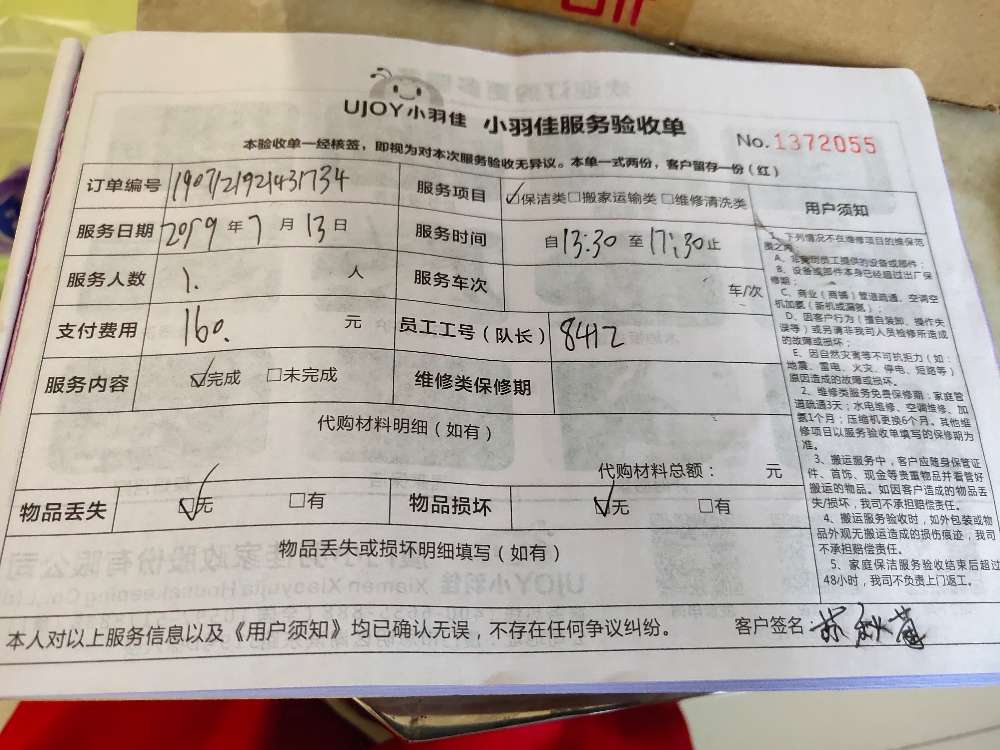 UJOY小羽佳 小羽佳服务验收单
No.1372055
本验收单一经核签，即视为对本次服务验收无异议。本单一式两份，客户留存一份（红）
订单编号 1907121921431734 服务项目 ☑保洁类□搬家运输类□维修清洗类
服务日期 2019年7月13日 服务时间 自13:30至17:30止
服务人数 1.人 服务车次 车/次
支付费用 160.元 员工工号（队长） 8412
服务内容 ☑完成 □未完成 维修类保修期
代购材料明细（如有）
代购材料总额： 元
物品丢失 ☑无 □有 物品损坏 ☑无 □有
物品丢失或损坏明细填写（如有）
本人对以上服务信息以及《用户须知》均已确认无误，不存在任何争议纠纷。 客户签名：
用户须知
1、下列情况不在维修项目的维保范
围之内
A、非我司员工提供的设备或部件；
B、设备或部件本身已经超过出厂保
修期；
C、商业（商铺）管道疏通、空调空
机加氨（新机或漏氨）；
D、因客户行为（擅自装卸、操作失
误等）或另请非我司人员检修所造成
的故障或损坏；
E、因自然灾害等不可抗拒力（如：
地震、雷电、火灾、停电、短路等）
原因造成的故障或损坏。
2、维修类服务免费保修期：家庭管
道疏通3天；水电维修、空调维修、加
氨1个月；压缩机更换6个月。其他维
修项目以服务验收单填写的保修期为
准。
3、搬运服务中，客户应随身保管证
件、首饰、现金等贵重物品并看管好
搬运的物品。如因客户造成的物品丢
失/损坏，我司不承担赔偿责任。
4、搬运服务验收时，如外包装或物
品外观无搬运造成的损伤痕迹，我司
不承担赔偿责任。
5、家庭保洁服务验收结束后超过
48小时，我司不负责上门返工。